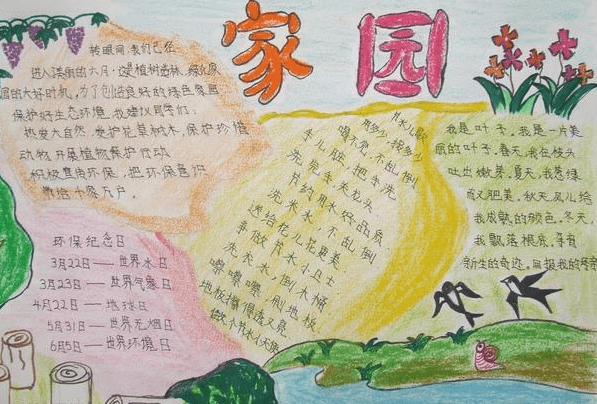 家园
转眼间,我们已经
进入美丽的六月,这是植树造林、绿化家
园的大好时机,为了创造良好的绿色家园
保护好生态环境,我建议同学们:
热爱大自然,爱护花草树木,保护珍惜
动物,开展植物保护行动
积极宣传环保,把环保意识
带给千家万户。
环保纪念日
3月22日——世界水日
3月23日——世界气象日
4月22日——地球日
5月31日——世界无烟日
6月5日——世界环境日
节水儿歌
用多少,接多少
喝不完,不乱倒
手儿脏,把手洗
洗完手,关龙头
节约用水好品质
洗米水,不乱倒
送给花儿花更美
争做节水小卫士
洗衣水,倒大桶
嚓嚓嚓,刷地板
地板擦得透又亮
我是叶子,我是一片美
丽的叶子。春天,我在枝头
吐出嫩芽。夏天,我葱绿
而又肥美,秋天,风儿给
我成熟的颜色,冬天,
我飘落根底,孕育
新生的奇迹。回报我的